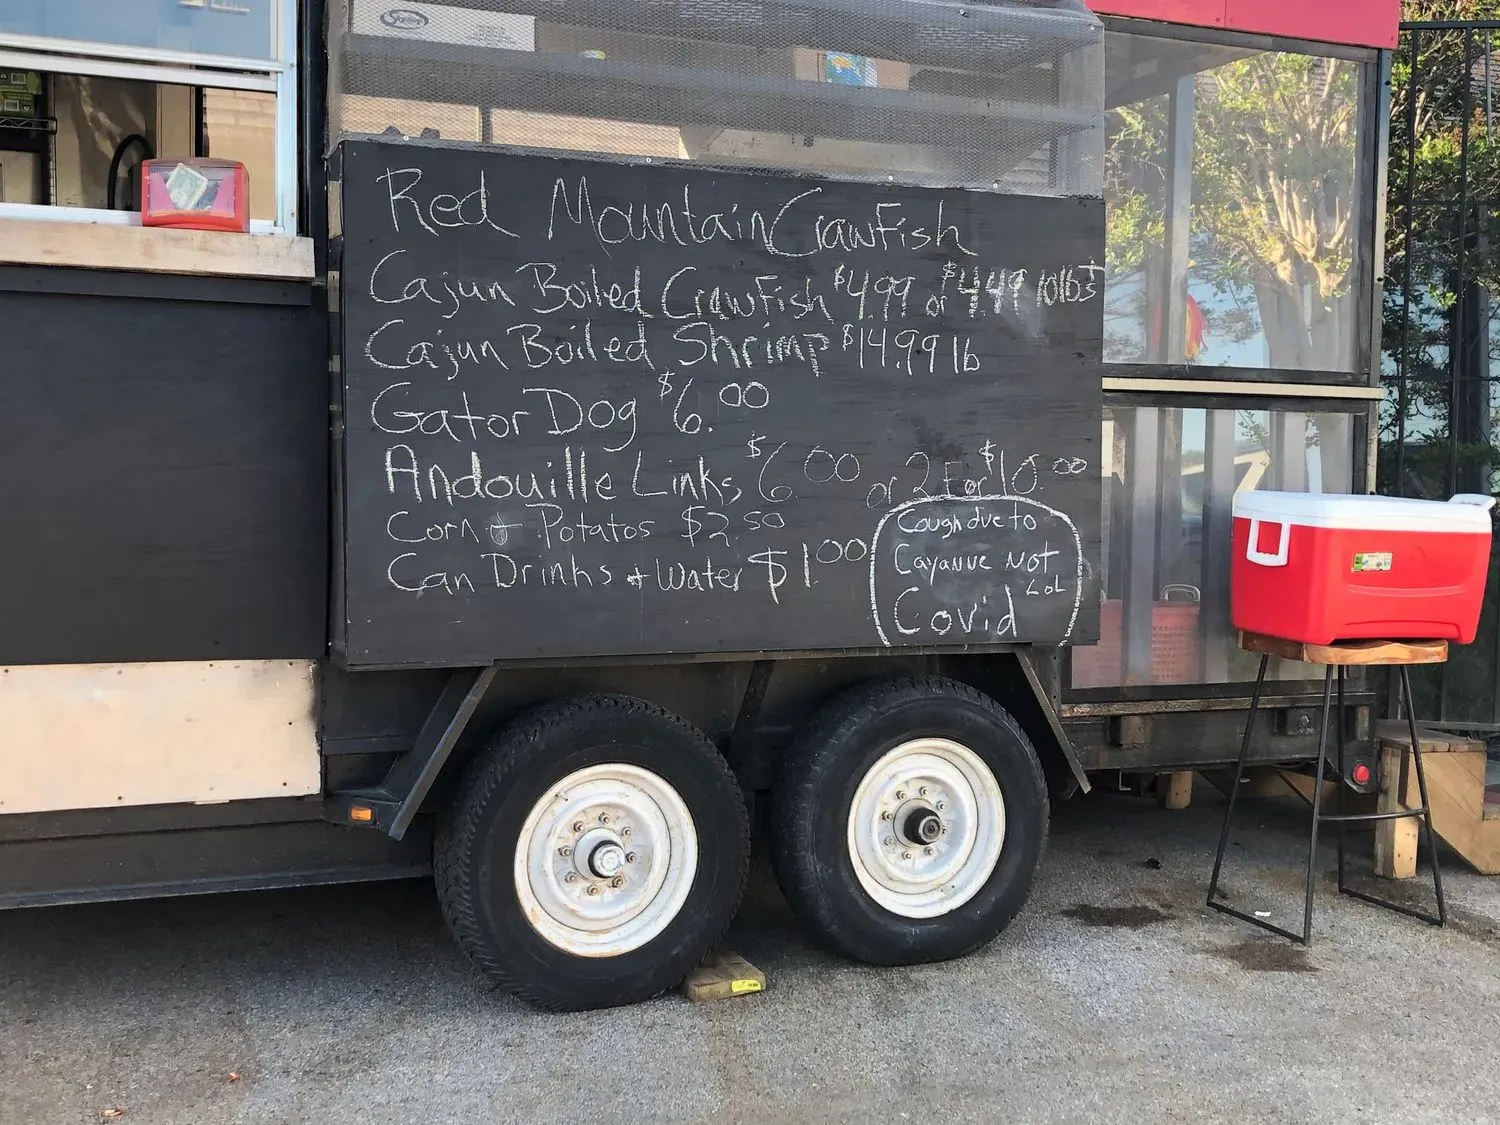 Red Mountain Crawfish
Cajun Boiled Crawfish $4.99 or $4.49 10lbs+
Cajun Boiled Shrimp $14.99 lb
Gator Dog $6.00
Andouille Links $6.00 or 2 For $10.00
Corn + Potatos $2.50
Can Drinks + Water $1.00
Cough due to
Cayanne Not
Covid LOL